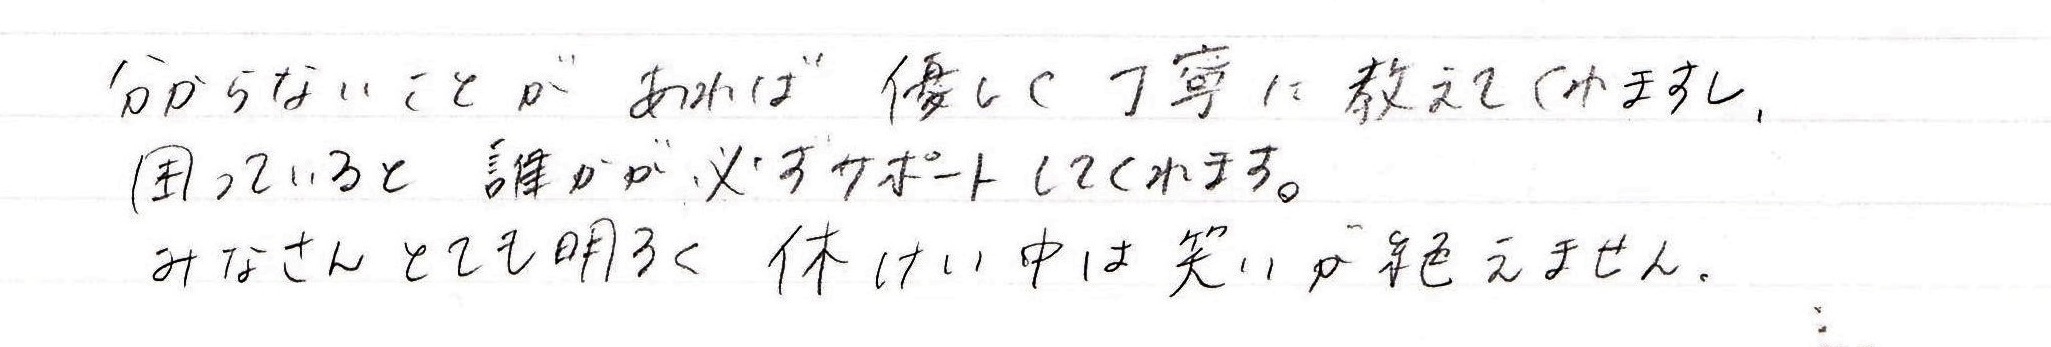 分からないことがあれば優しく丁寧に教えてくれますし、
困っていると誰かが必ずサポートしてくれます。
みなさんとても明るく休けい中は笑いが絶えません。